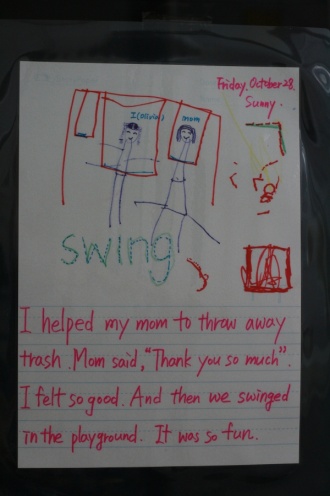 Friday, October 28.
Sunny.
I (Olivia)
mom
swing
I helped my mom to throw away
trash. Mom said, "Thank you so much".
I felt so good. And then we swinged
in the playground. It was so fun.